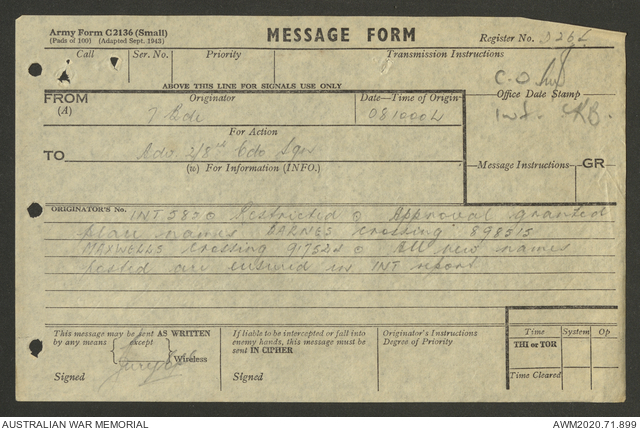 Army Form C2136 (Small)
(Pads of 100) (Adapted Sept. 1943)
MESSAGE FORM
Register No. 326L
Call Ser. No. Priority Transmission Instructions
ABOVE THIS LINE FOR SIGNALS USE ONLY
C.O.
FROM
(A)
Originator
Date—Time of Origin
Office Date Stamp
7 Bde
081000L
Int. KB.
For Action
TO
Adv 2/8th Cdo Sqn
(w) For Information (INFO.)
Message Instructions GR
ORIGINATOR'S No. INT 582 o Restricted o Approval granted
place names BARNES Crossing 898515
MAXWELLS Crossing 917524 o All new names
INT report
This message may be sent AS WRITTEN
by any means except
Wireless
Signed
If liable to be intercepted or fall into
enemy hands, this message must be
sent IN CIPHER
Signed
Originator's Instructions
Degree of Priority
Time System Op
THI or TOR
Time Cleared
AUSTRALIAN WAR MEMORIAL
AWM2020.71.899